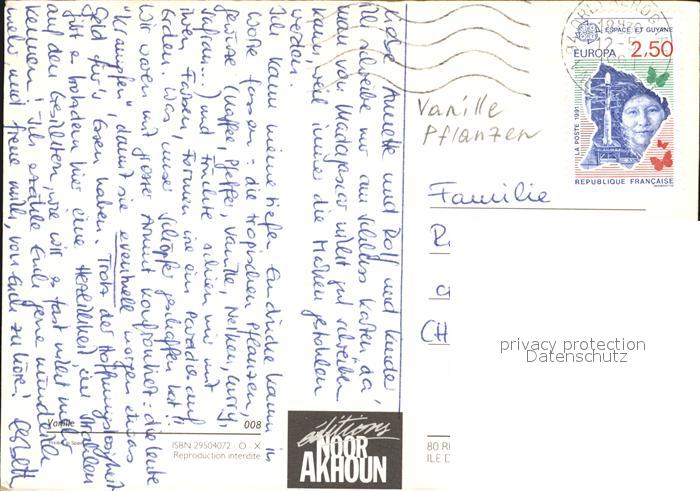 Liebe Annette und Rolf und Kinder,
Ich schreibe nur am Schluss Karten, da
man von Madagascar nicht gut schreiben
kann, weil immer die Marken gestohlen
werden.
Ich kann meine tiefen Eindrücke kaum in
Worte fassen: die tropischen Pflanzen,
Gewürze (Kaffee, Pfeffer, Vanille, Nelken, Curry,
Safran...) und Früchte schienen mir mit
ihren Farben, Formen wie ein Paradies auf
Erden. Was unser Schöpfer geschaffen hat!!
Wir waren mit grosser Armut konfrontiert: die Leute
"krampfen", damit sie eventuell morgen etwas
Geld für's Essen haben. Trotz der Hoffnungslosigkeit
gibt es trotzdem hier eine Herzlichkeit, ein Strahlen
auf den Gesichtern, wie wir es fast nicht mehr
kennen! Ich erzähle Euch gerne mündlich
mehr und freue mich, von Euch zu hören!
Vanille
Pflanzen
Familie
CH
ESPACE ET GUYANE
EUROPA 2,50
LA POSTE 1991
REPUBLIQUE FRANÇAISE
privacy protection
Datenschutz
Vanille 008
ISBN-29504072 - O - X
Reproduction interdite
éditions
NOOR
AKHOUN
80 R
ILE D